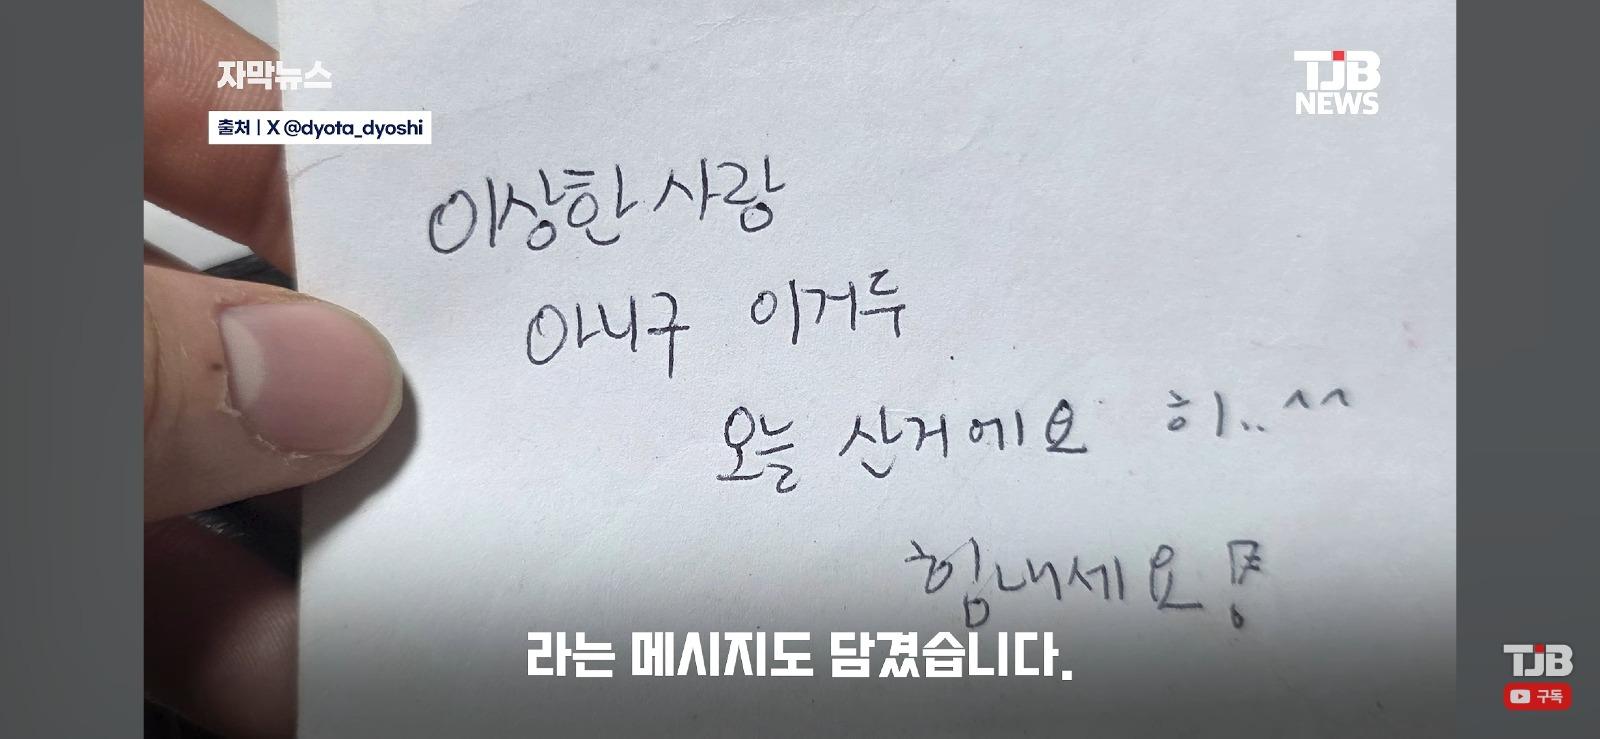 자막뉴스
TJB
NEWS
출처 | X @dyota_dyoshi
이상한 사랑
아니구 이거두
오늘 산거에요 히..^^
힘내세요!
라는 메시지도 담겼습니다.
TJB
구독